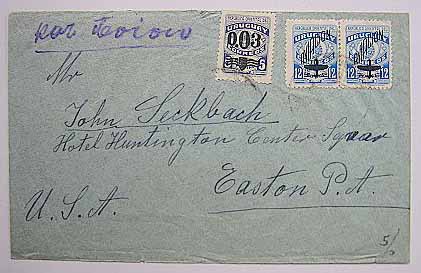 URUGUAY
003
5
URUGUAY
12
12
URUGUAY
12
12
Mr
John Seckbach
Hotel Huntington Center Square
Easton P.A.
U.S.A.
5/.